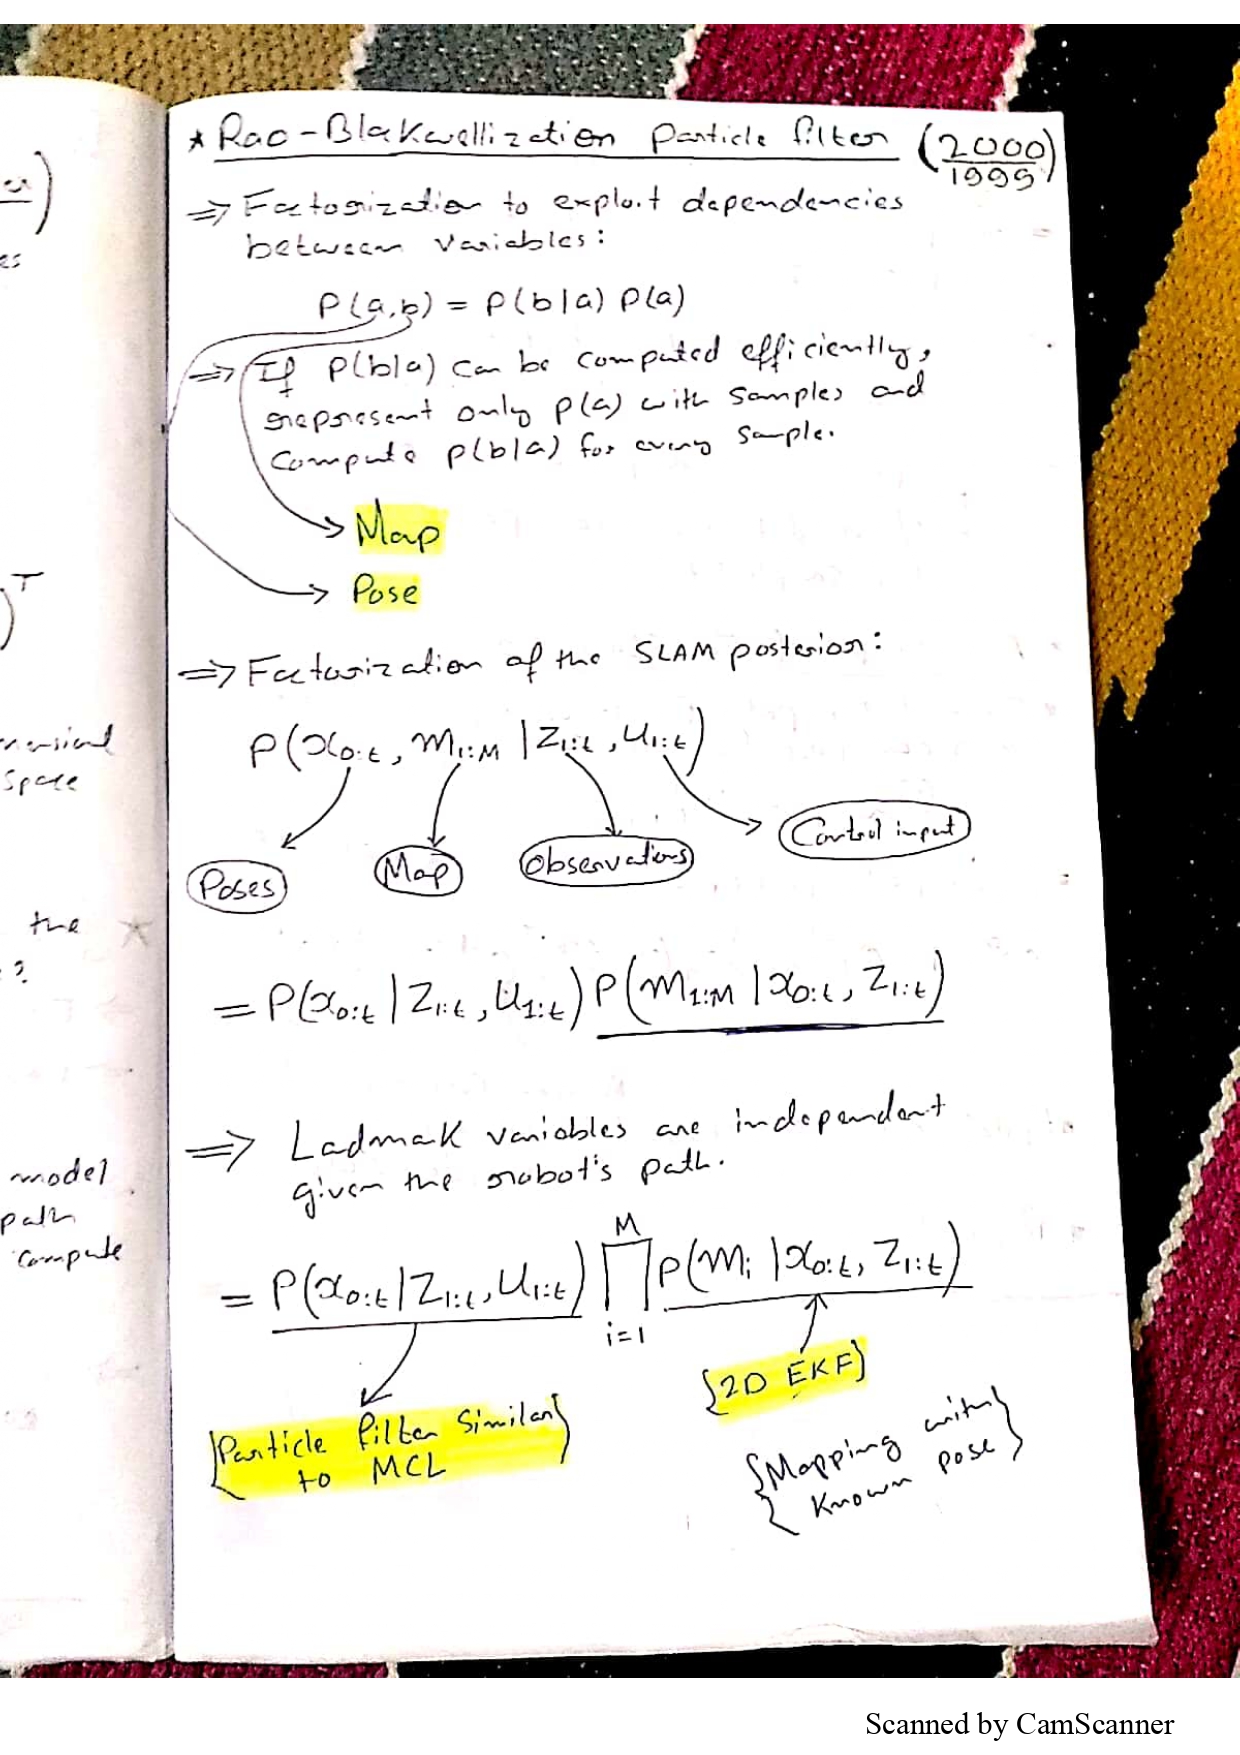 * Rao-Blakwellization Particle filter (2000/1999)
=> Factorization to exploit dependencies
between variables:
P(a,b) = P(b|a) P(a)
=> If P(b|a) can be computed efficiently,
represent only P(a) with samples and
Compute P(b|a) for every sample.
Map
Pose
=> Factorization of the SLAM posterior:
P(x₀:t, m₁:M | z₁:t, u₁:t)
Poses Map Observations Control input
= P(x₀:t | z₁:t, u₁:t) P(m₁:M | x₀:t, z₁:t)
=> Ladmark variables are independent
given the robot's path.
= P(x₀:t | z₁:t, u₁:t) ∏ᵢ₌₁ᴹ P(mᵢ | x₀:t, z₁:t)
{2D EKF}
{Particle filter Similar
to MCL}
{Mapping with
Known pose}
es
T
Space
the
?
model
path
compute
Scanned by CamScanner